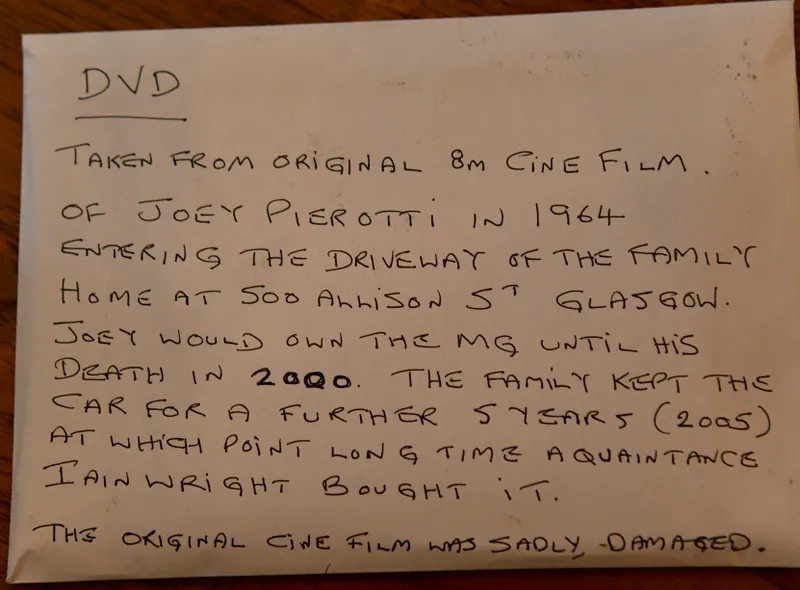 DVD
TAKEN FROM ORIGINAL 8M CINE FILM.
OF JOEY PIEROTTI IN 1964
ENTERING THE DRIVEWAY OF THE FAMILY
HOME AT 500 ALLISON ST GLASGOW.
JOEY WOULD OWN THE MG UNTIL HIS
DEATH IN 2000. THE FAMILY KEPT THE
CAR FOR A FURTHER 5 YEARS (2005)
AT WHICH POINT LONG TIME AQUAINTANCE
IAIN WRIGHT BOUGHT IT.
THE ORIGINAL CINE FILM WAS SADLY DAMAGED.